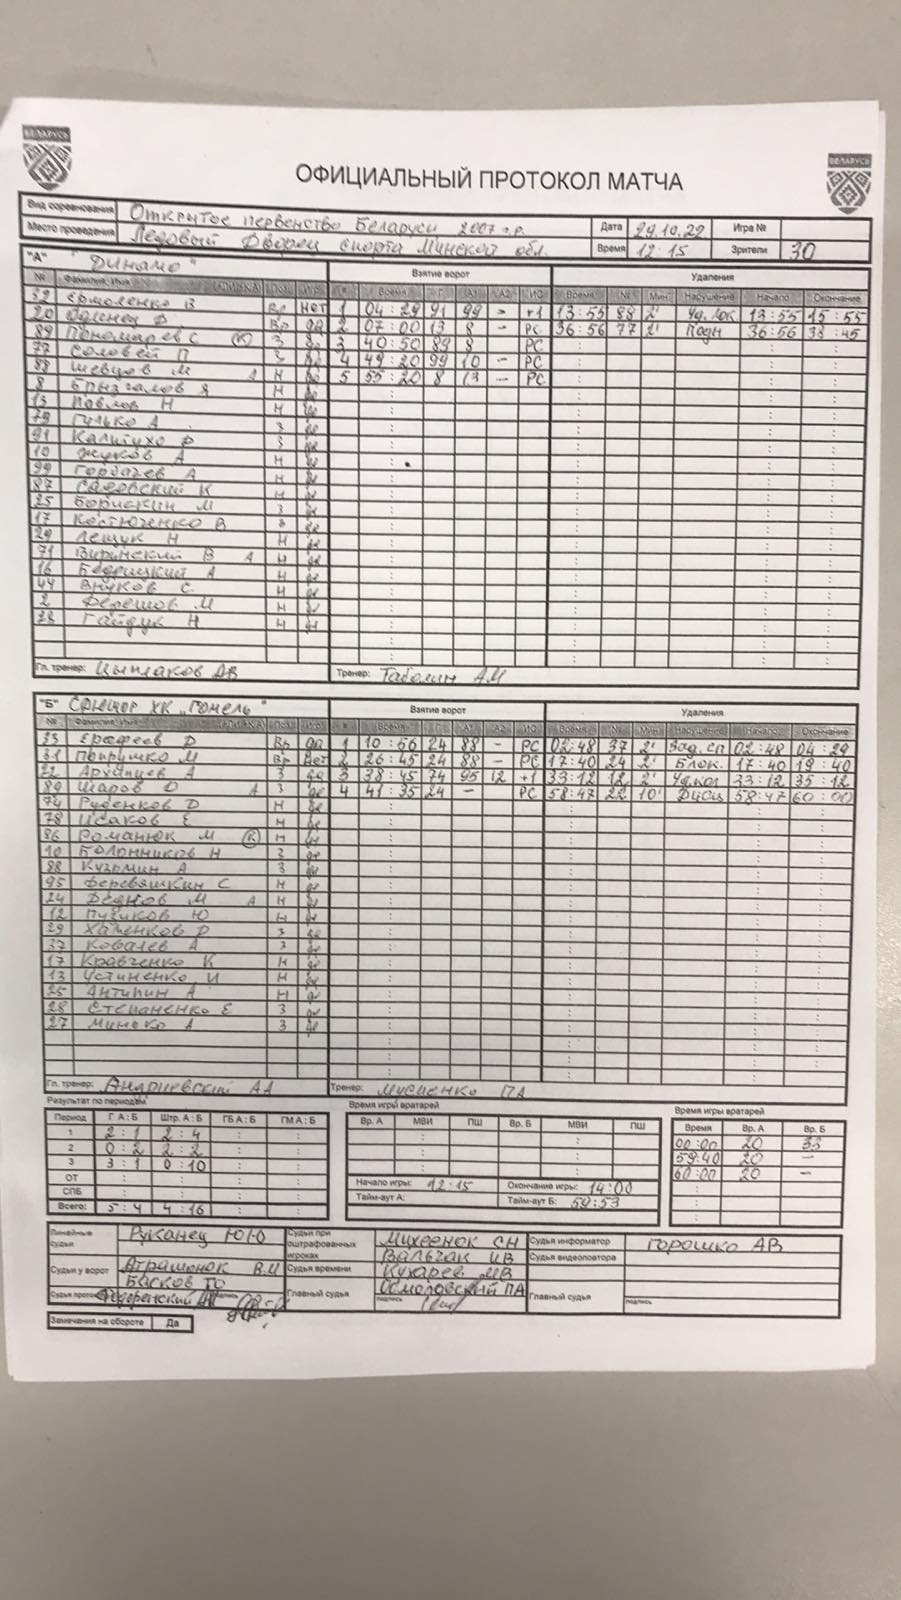 БЕЛАРУСЬ
БЕЛАРУСЬ
ОФИЦИАЛЬНЫЙ ПРОТОКОЛ МАТЧА
Вид соревнования Открытое первенство Беларуси 2007 г.р. Дата 29.10.22 Игра №
Место проведения Ледовый Дворец спорта Минской обл. Время 12:15 Зрители 30
"А" "Динамо" Взятие ворот Удаления
№ Фамилия, Имя Поз. Иг. # Время Г А1 А2 ИС Время № Мин. Нарушение Начало Окончание
Ермоленко В Вр нет 1 04:29 91 99 - +1 13:55 88 2' Уд. 13:55 15:55
20 Вр да 2 07:00 13 8 - РС 36:56 77 2' Подн 36:56 38:45
89 Пономарев С (К) З да 3 40:50 89 8 РС
77 Соловей П З да 4 49:20 99 10 - РС
88 Шевцов М А Н да 5 55:20 8 13 - РС
8 Брызгалов Я Н да
13 Павлов Н Н да
79 Гулько А З да
91 З да
10 Жуков А Н да
99 Горбачев А Н да
87 Садовский К Н да
25 Борискин М З да
17 Костюченко В З да
29 Лещук Н Н да
71 В А Н да
16 Бедрицкий А Н да
44 Внуков С Н да
2 М Н да
78 Гайдук Н Н да
Гл. тренер: Цыплаков АВ Тренер: Таболин АМ
"Б" СДЮШОР ХК "Гомель" Взятие ворот Удаления
№ Фамилия, Имя Поз. Иг. # Время Г А1 А2 ИС Время № Мин. Нарушение Начало Окончание
33 Ерофеев D Вр да 1 10:56 24 88 - РС 02:48 37 2' Зад.кл 02:48 04:29
31 М Вр нет 2 26:45 24 88 - РС 17:40 24 2' Блок. 17:40 19:40
22 Архипцев А З да 3 38:45 74 95 12 +1 33:12 12 2' 33:12 35:12
89 Шаров D А З да 4 41:35 24 - РС 58:47 22 10' Дисц 58:47 60:00
74 Руденков D Н да
78 Исаков Е Н да
86 Романюк М (К) Н да
10 Н З да
88 Кузьмин А З да
95 Деревяшкин С Н да
24 Деднов М А Н да
12 Пузиков Ю Н да
29 Хаменков D З да
37 Ковалев А З да
17 Кравченко К Н да
13 Устименко И Н да
25 Антипин А Н да
28 Степаненко Е З да
27 А З да
Гл. тренер: Андриевский АА Тренер: Мусиенко ПА
Результат по периодам Время игры вратарей Время игры вратарей
Период Г А : Б Штр. А : Б ГБ А : Б ГМ А : Б Вр. А МВИ ПШ Вр. Б МВИ ПШ Время Вр. А Вр. Б
1 2 : 1 2 : 4 00:00 20 33
2 0 : 2 2 : 2 59:40 20 -
3 3 : 1 0 : 10 60:00 20 -
ОТ Начало игры: 12:15 Окончание игры: 14:00
СПБ Тайм-аут А: Тайм-аут Б: 59:53
Всего: 5 : 4 4 : 16
Линейные судьи Руканец Ю Ю Судьи при оштрафованных игроках Михеенок СН Судья информатор Горошко АВ
Вальчак ИВ
Судьи у ворот Аграшонок В.И Судья времени Кухарев МВ Судья видеоповтора
Басков ГО
Судья протокола подпись Главный судья Осмоловский ПА подпись Главный судья подпись
Замечания на обороте Да